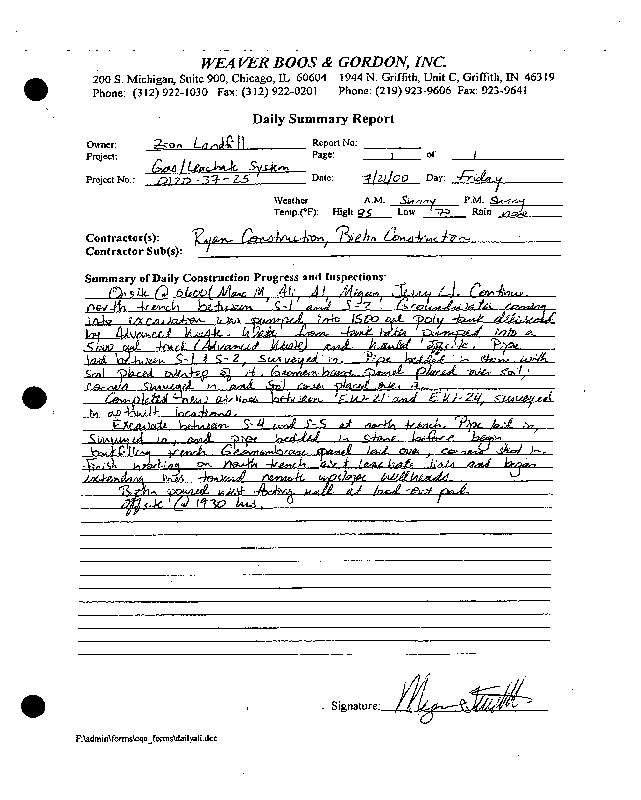 WEAVER BOOS & GORDON, INC.
200 S. Michigan, Suite 900, Chicago, IL 60604 1944 N. Griffith, Unit C, Griffith, IN 46319
Phone: (312) 922-1030 Fax: (312) 922-0201 Phone: (219) 923-9606 Fax: 923-9641
Daily Summary Report
Owner: Zion Landfill Report No:
Project: Gas/Leachate System Page: 1 of 1
Project No.: 0120-37-25 Date: 7/21/00 Day: Friday
Weather A.M. Sunny P.M. Sunny
Temp.(°F): High 85 Low Rain none
Contractor(s): Ryan Construction, Biehn Construction
Contractor Sub(s):
Summary of Daily Construction Progress and Inspections:
Onsite @ 0600 (Marc M, Ali, Al, Megan, Jerry L). Continue
north trench between S-1 and S-2. Groundwater coming
into excavation was pumped into 1500 gal poly tank delivered
by Advanced Waste. Water from tank pumped into a
gal truck (Advanced Waste) and hauled offsite. Pipe
laid between S-1 & S-2, surveyed in. Pipe bedded in stone with
soil placed overtop of it. Geomembrane panel placed over soil,
corners surveyed in and soil cover placed over it.
Completed new between EW-21 and EW-24, surveyed
in as-built locations.
Excavate between S-4 and S-5 at north trench. Pipe laid in,
surveyed in, and pipe bedded in stone before began
backfilling trench. Geomembrane panel laid over, corners shot in.
Finish working on north trench and leachate lines and began
extending lines toward remote wellheads.
Biehn poured west footing wall at load-out pad.
Offsite @ 1930 hrs.
Signature:
F:\admin\forms\cqa_forms\dailyali.doc